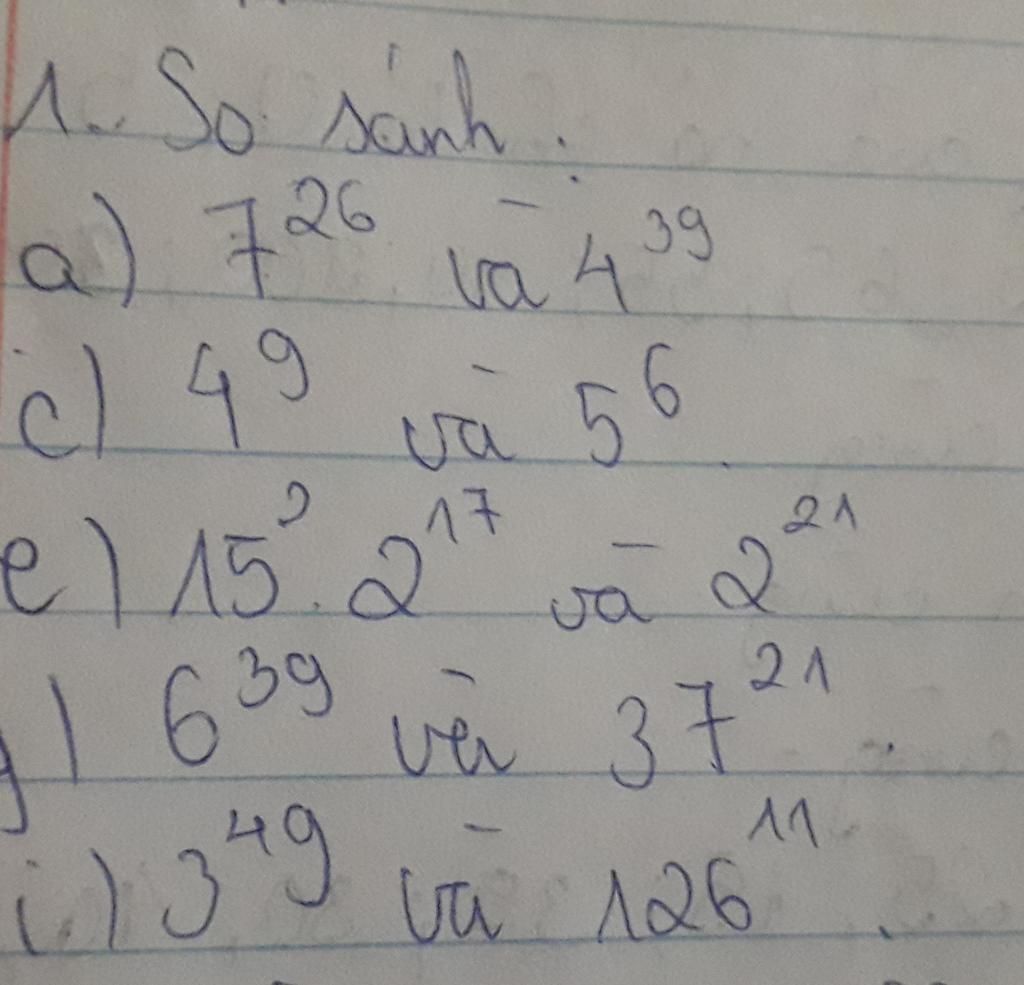 1. So sánh:
a) 7²⁶ và 4³⁹
c) 4⁹ và 5⁶
e) 15 . 2¹⁷ và 2²¹
g) 6³⁹ và 37²¹
i) 3⁴⁹ và 126¹¹.